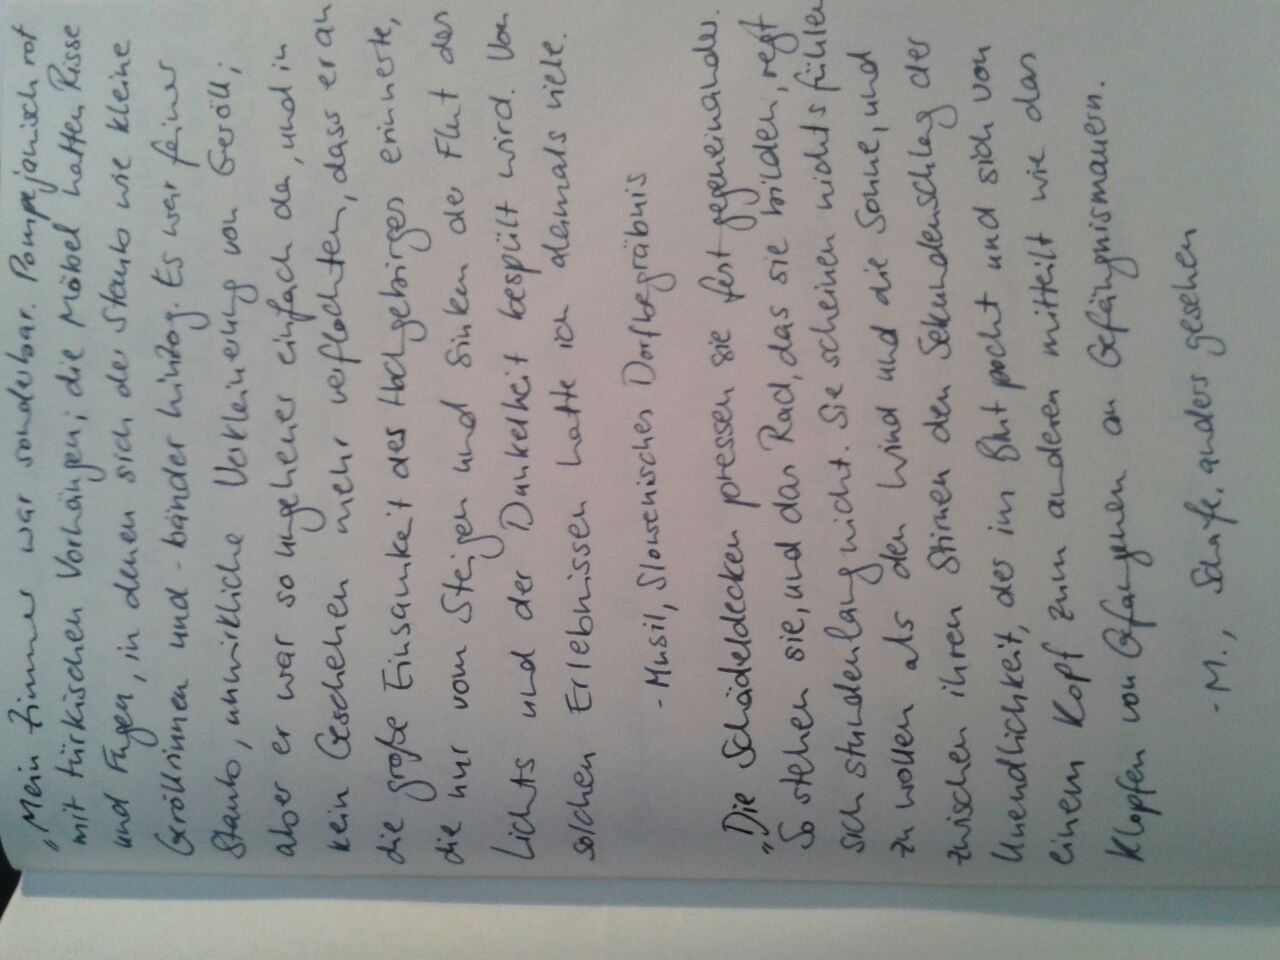 „Mein Zimmer war sonderbar. Pompejanisch rot
mit türkischen Vorhängen; die Möbel hatten Risse
und Fugen, in denen sich der Staub wie kleine
Geröllrinnen und -bänder hinzog. Es war feiner
Staub, unwirkliche Verkleinerung von Geröll;
aber er war so ungeheuer einfach da, und in
kein Geschehen mehr verflochten, dass er an
die große Einsamkeit des Hochgebirges erinnerte,
die nur vom Steigen und Sinken der Flut des
Lichts und der Dunkelheit bespült wird. Von
solchen Erlebnissen hatte ich damals viele.
- Musil, Slowenisches Dorfbegräbnis
„Die Schädeldecken pressen sie fest gegeneinander.
So stehen sie, und das Rad, das sie bilden, regt
sich stundenlang nicht. Sie scheinen nichts fühlen
zu wollen als den Wind und die Sonne, und
zwischen ihren Stirnen den Sekundenschlag der
Unendlichkeit, der im Blut pocht und sich von
einem Kopf zum anderen mitteilt wie das
Klopfen von Gefangenen an Gefängnismauern.
- M., Schafe, anders gesehen